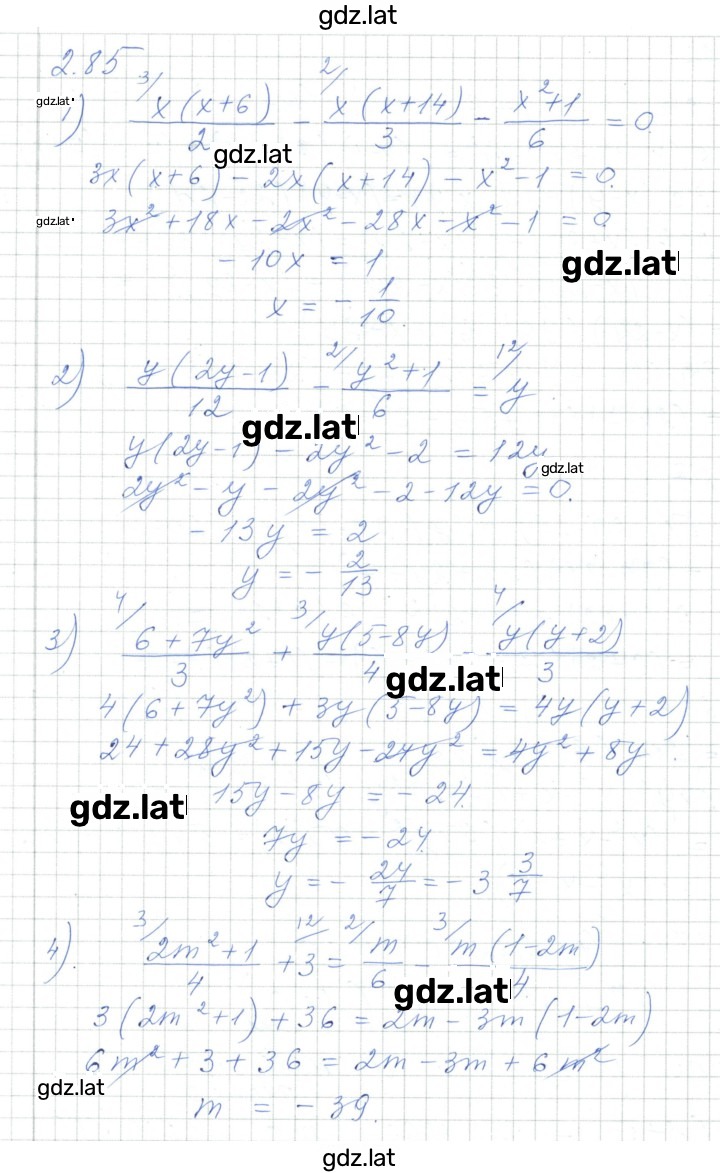 gdz.lat
2.85
1) ³/ x(x+6)/2 - ²/ x(x+14)/3 - x²+1/6 = 0
gdz.lat
gdz.lat
3x(x+6) - 2x(x+14) - x² - 1 = 0.
gdz.lat
3x² + 18x - 2x² - 28x - x² - 1 = 0
- 10x = 1
gdz.lat
x = - 1/10.
2) y(2y-1)/12 - ²/ y²+1/6 = ¹²/ y.
gdz.lat
y(2y-1) - 2y² - 2 = 12y
gdz.lat
2y² - y - 2y² - 2 - 12y = 0.
- 13y = 2
y = - 2/13.
3) ⁴/ 6+7y²/3 + ³/ y(5-8y)/4 ⁴/ y(y+2)/3
gdz.lat
4(6+7y²) + 3y(5-8y) = 4y(y+2)
24 + 28y² + 15y - 24y² = 4y² + 8y.
gdz.lat
15y - 8y = - 24.
7y = - 24.
y = - 24/7 = - 3 3/7
4). ³/ 2m²+1/4 + ¹²/ 3 = ²/ m/6 - ³/ m(1-2m)/4.
gdz.lat
3(2m²+1) + 36 = 2m - 3m(1-2m)
6m² + 3 + 36 = 2m - 3m + 6m²
gdz.lat
m = - 39.
gdz.lat